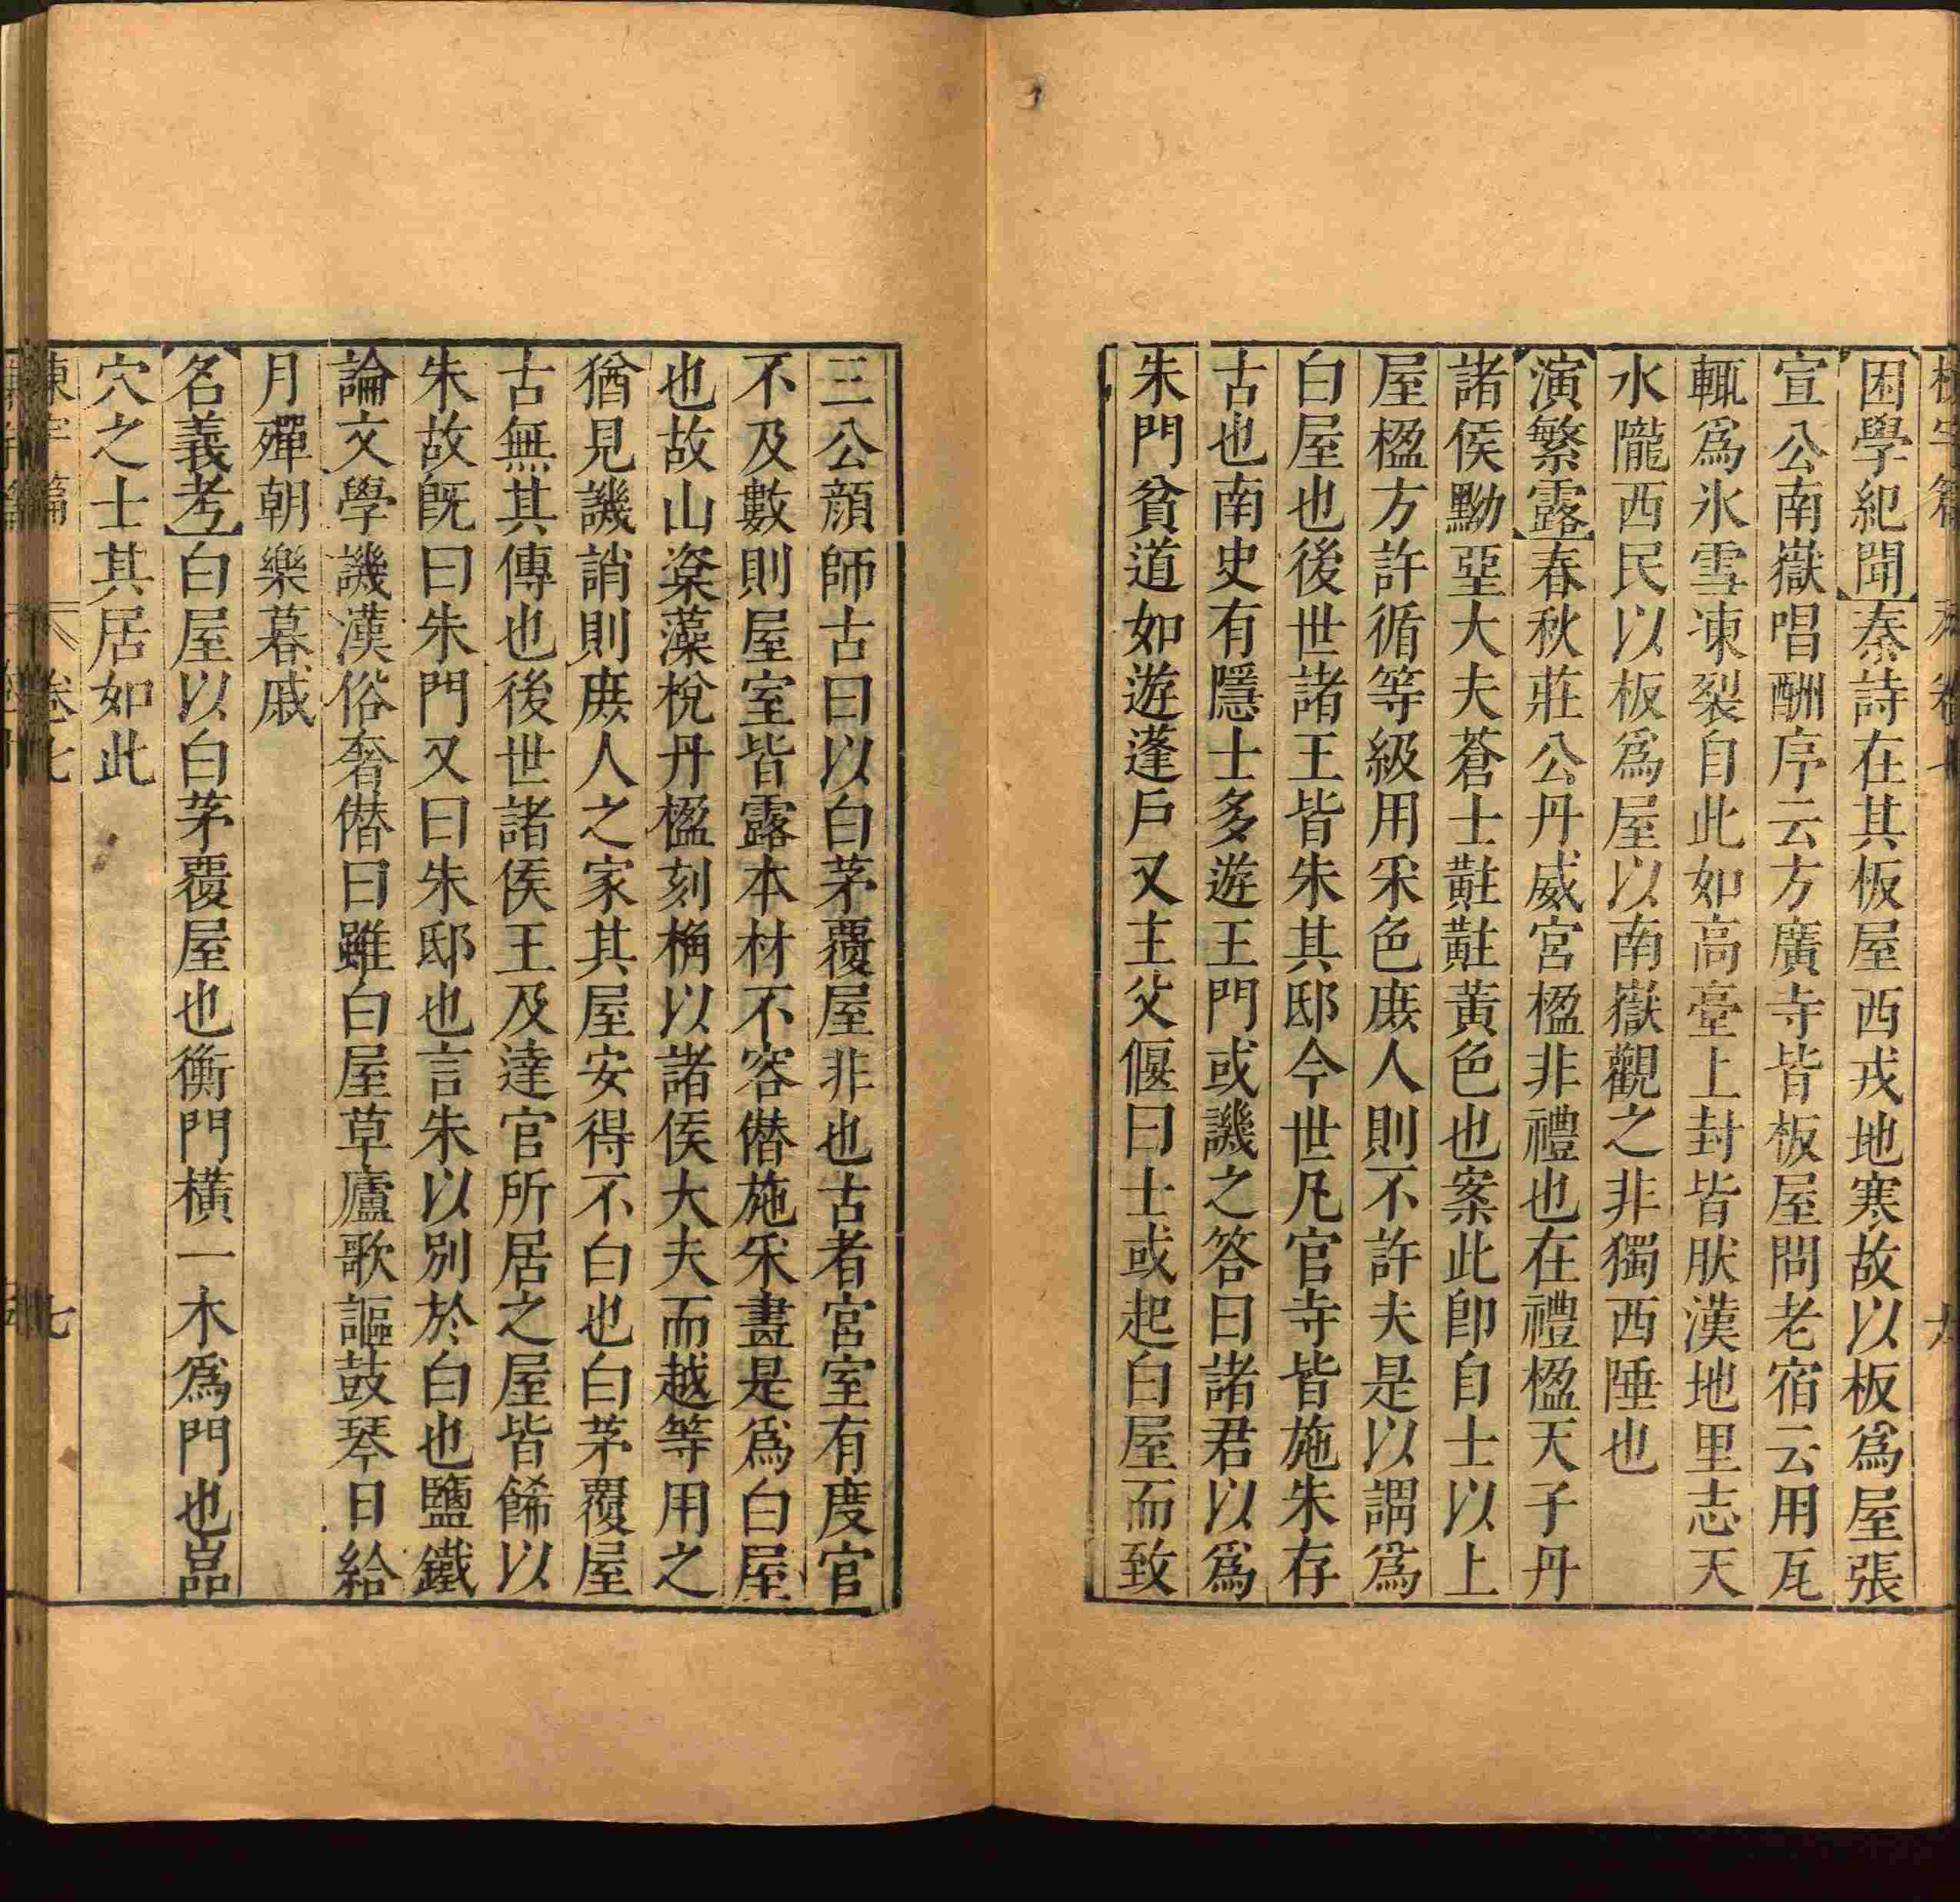 困學紀聞秦詩在其板屋西戎地寒故以板爲屋張
宣公南嶽唱酬序云方廣寺皆板屋問老宿云用瓦
輒爲氷雪凍裂自此如高臺上封皆肰漢地里志天
水隴西民以板爲屋以南嶽觀之非獨西陲也
演繁露春秋莊公丹威宮楹非禮也在禮楹天子丹
諸侯黝堊大夫蒼士黈黈黃色也案此卽自士以上
屋楹方許循等級用采色庻人則不許夫是以謂爲
白屋也後世諸王皆朱其邸今世凡官寺皆施朱存
古也南史有隱士多遊王門或譏之答曰諸君以爲
朱門貧道如遊蓬戶又主父偃曰士或起白屋而致
三公顔師古曰以白茅覆屋非也古者宮室有度官
不及數則屋室皆露本材不容僭施采畫是爲白屋
也故山楶藻梲丹楹刻桷以諸侯大夫而越等用之
猶見譏誚則庻人之家其屋安得不白也白茅覆屋
古無其傳也後世諸侯王及達官所居之屋皆餙以
朱故旣曰朱門又曰朱邸也言朱以別於白也鹽鐵
論文學譏漢俗奢僭曰雖白屋草廬歌謳鼓琴日給
月殫朝樂暮戚
名義考白屋以白茅覆屋也衡門橫一木爲門也嵓
穴之士其居如此
卷七
七